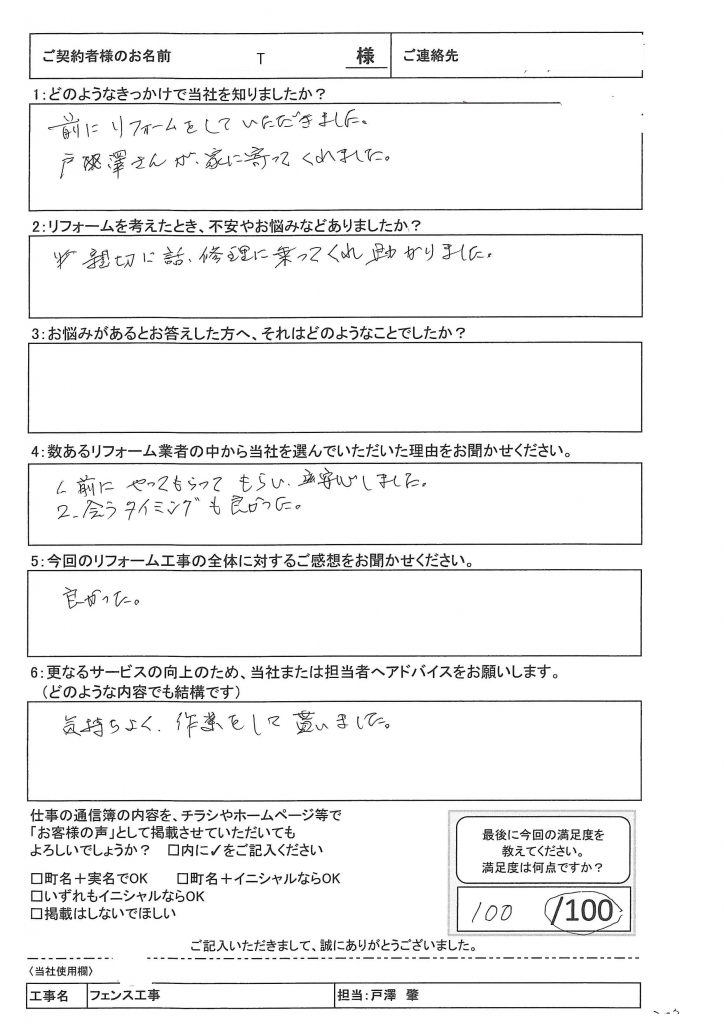 ご契約者様のお名前 T 様 ご連絡先
1:どのようなきっかけで当社を知りましたか?
前にリフォームをしていただきました。
さんが、家に寄ってくれました。
2:リフォームを考えたとき、不安やお悩みなどありましたか?
親切に話、修理に乗ってくれ助かりました。
3:お悩みがあるとお答えした方へ、それはどのようなことでしたか?
4:数あるリフォーム業者の中から当社を選んでいただいた理由をお聞かせください。
1. 前にやってもらってもらい、安心しました。
2. 会うタイミングも良かった。
5:今回のリフォーム工事の全体に対するご感想をお聞かせください。
良かった。
6:更なるサービスの向上のため、当社または担当者へアドバイスをお願いします。
(どのような内容でも結構です)
気持ちよく、作業をして貰いました。
仕事の通信簿の内容を、チラシやホームページ等で
「お客様の声」として掲載させていただいても
よろしいでしょうか? □内に✓をご記入ください
□町名+実名でOK □町名+イニシャルならOK
□いずれもイニシャルならOK
□掲載はしないでほしい
最後に今回の満足度を
教えてください。
満足度は何点ですか?
100 /100
ご記入いただきまして、誠にありがとうございました。
〈当社使用欄〉
工事名 フェンス工事 担当:戸澤 肇